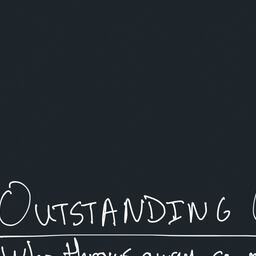 OUTSTANDING
Who throws away